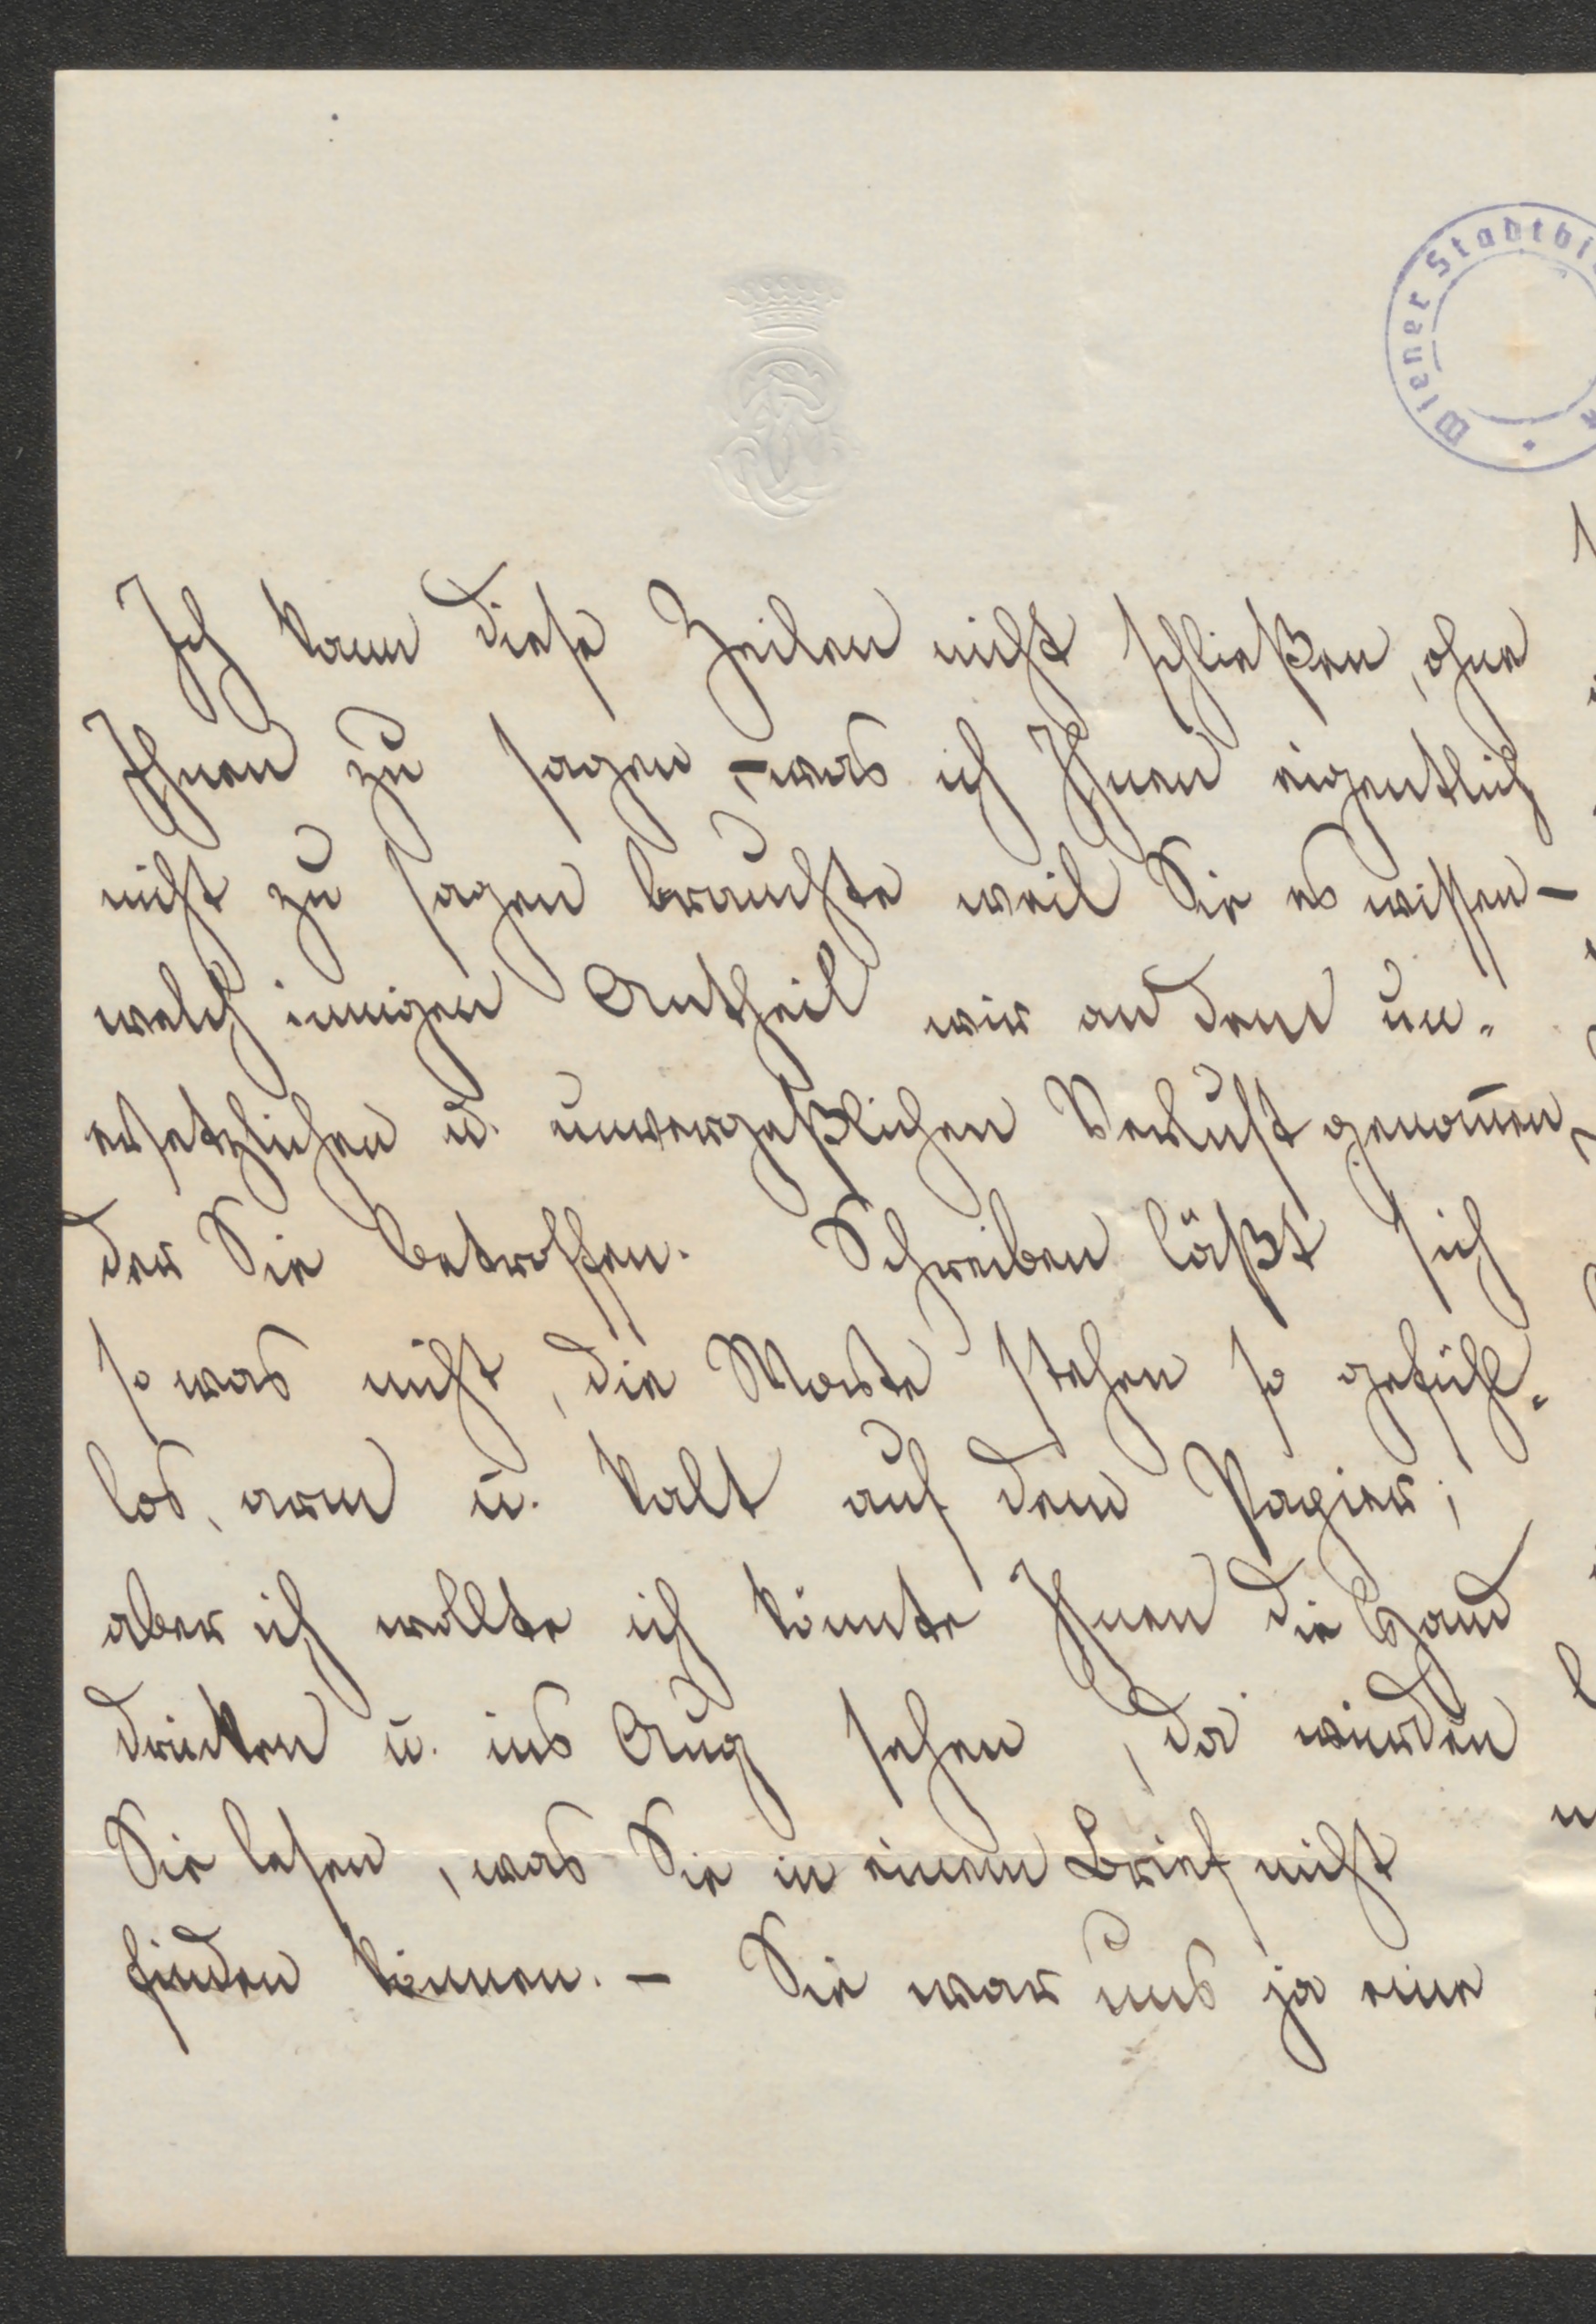 Wiener Stadtbi
Ich kann diese Zeilen nicht schließen, ohne
Ihnen zu sagen – was ich Ihnen eigentlich
nicht zu sagen brauchte weil Sie es wissen –
welch innigen Antheil wir an dem un-
ersetzlichen u. unvergeßlichen Verlust genom̄en,
der Sie betroffen. Schreiben läßt sich
so was nicht, die Worte stehen so gefühl-
los, arm u. kalt auf dem Papier;
aber ich wollte ich könnte Ihnen die Hand
drücken u. ins Aug sehen, da würden
Sie lesen, was Sie in einem Brief nicht
finden können. – Sie war uns ja eine